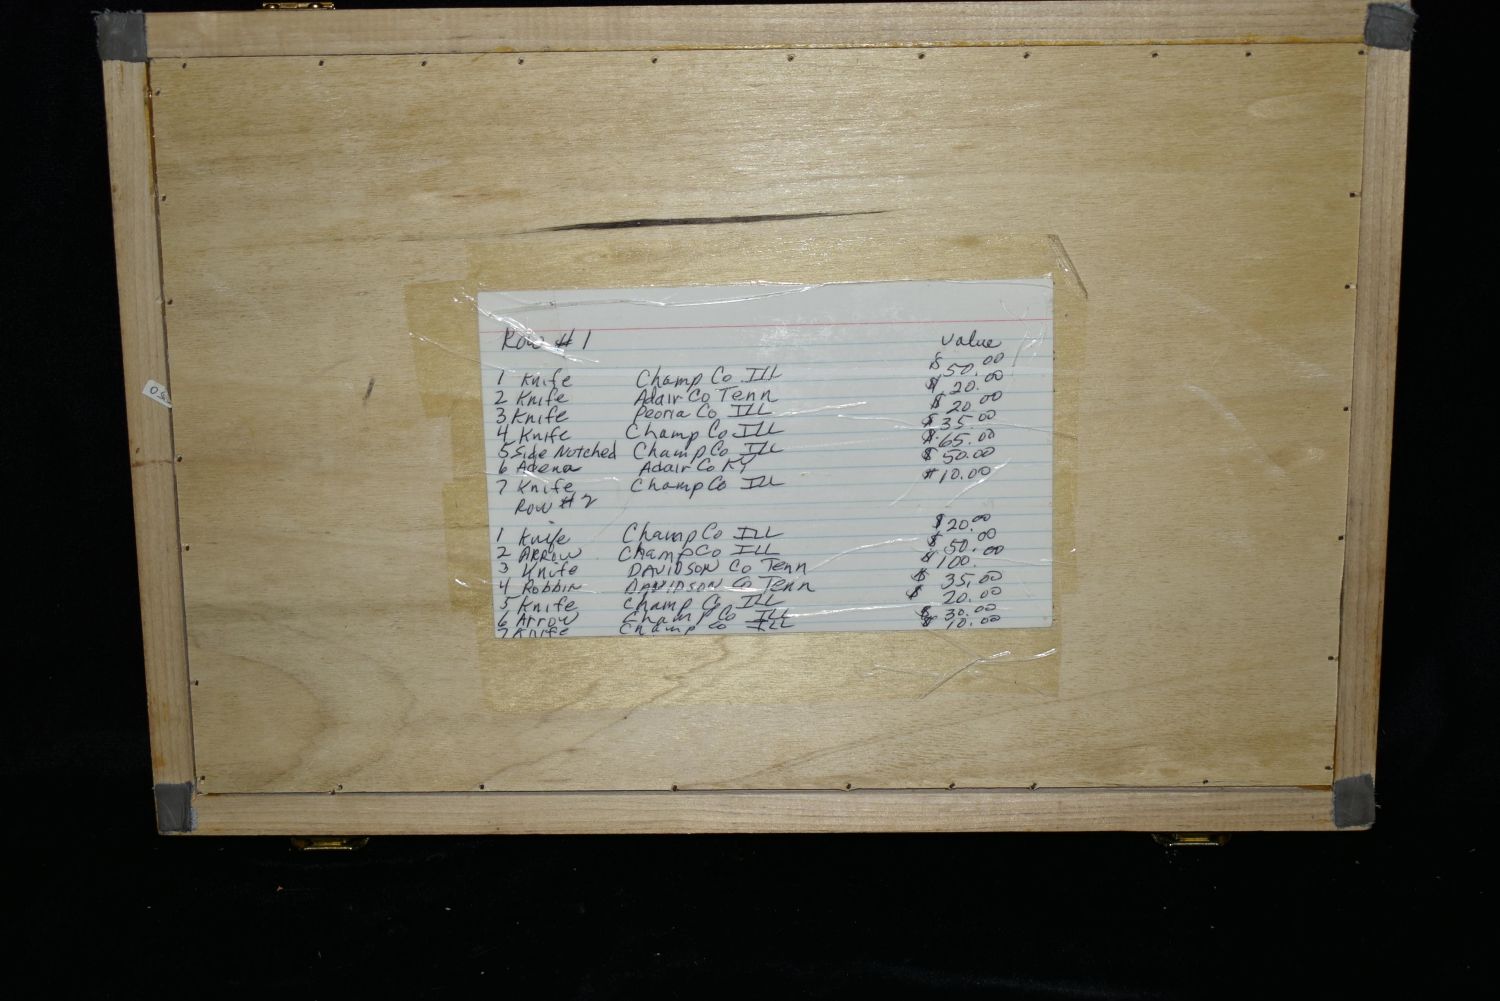 Row # 1 Value
1 Knife Champ Co ILL $50.00
2 Knife Adair Co Tenn $20.00
3 Knife Peoria Co ILL $20.00
4 Knife Champ Co ILL $35.00
5 Side Notched Champ Co ILL $65.00
6 Adena Adair Co KY $50.00
7 Knife Champ Co ILL $10.00
Row # 2
1 Knife Champ Co ILL $20.00
2 ARROW Champ Co ILL $50.00
3 Knife DAVIDSON Co Tenn $100.00
4 Robbin DAVIDSON Co Tenn $35.00
5 Knife Champ Co ILL $20.00
6 Arrow Champ Co ILL $30.00
7 Knife Champ Co ILL $10.00